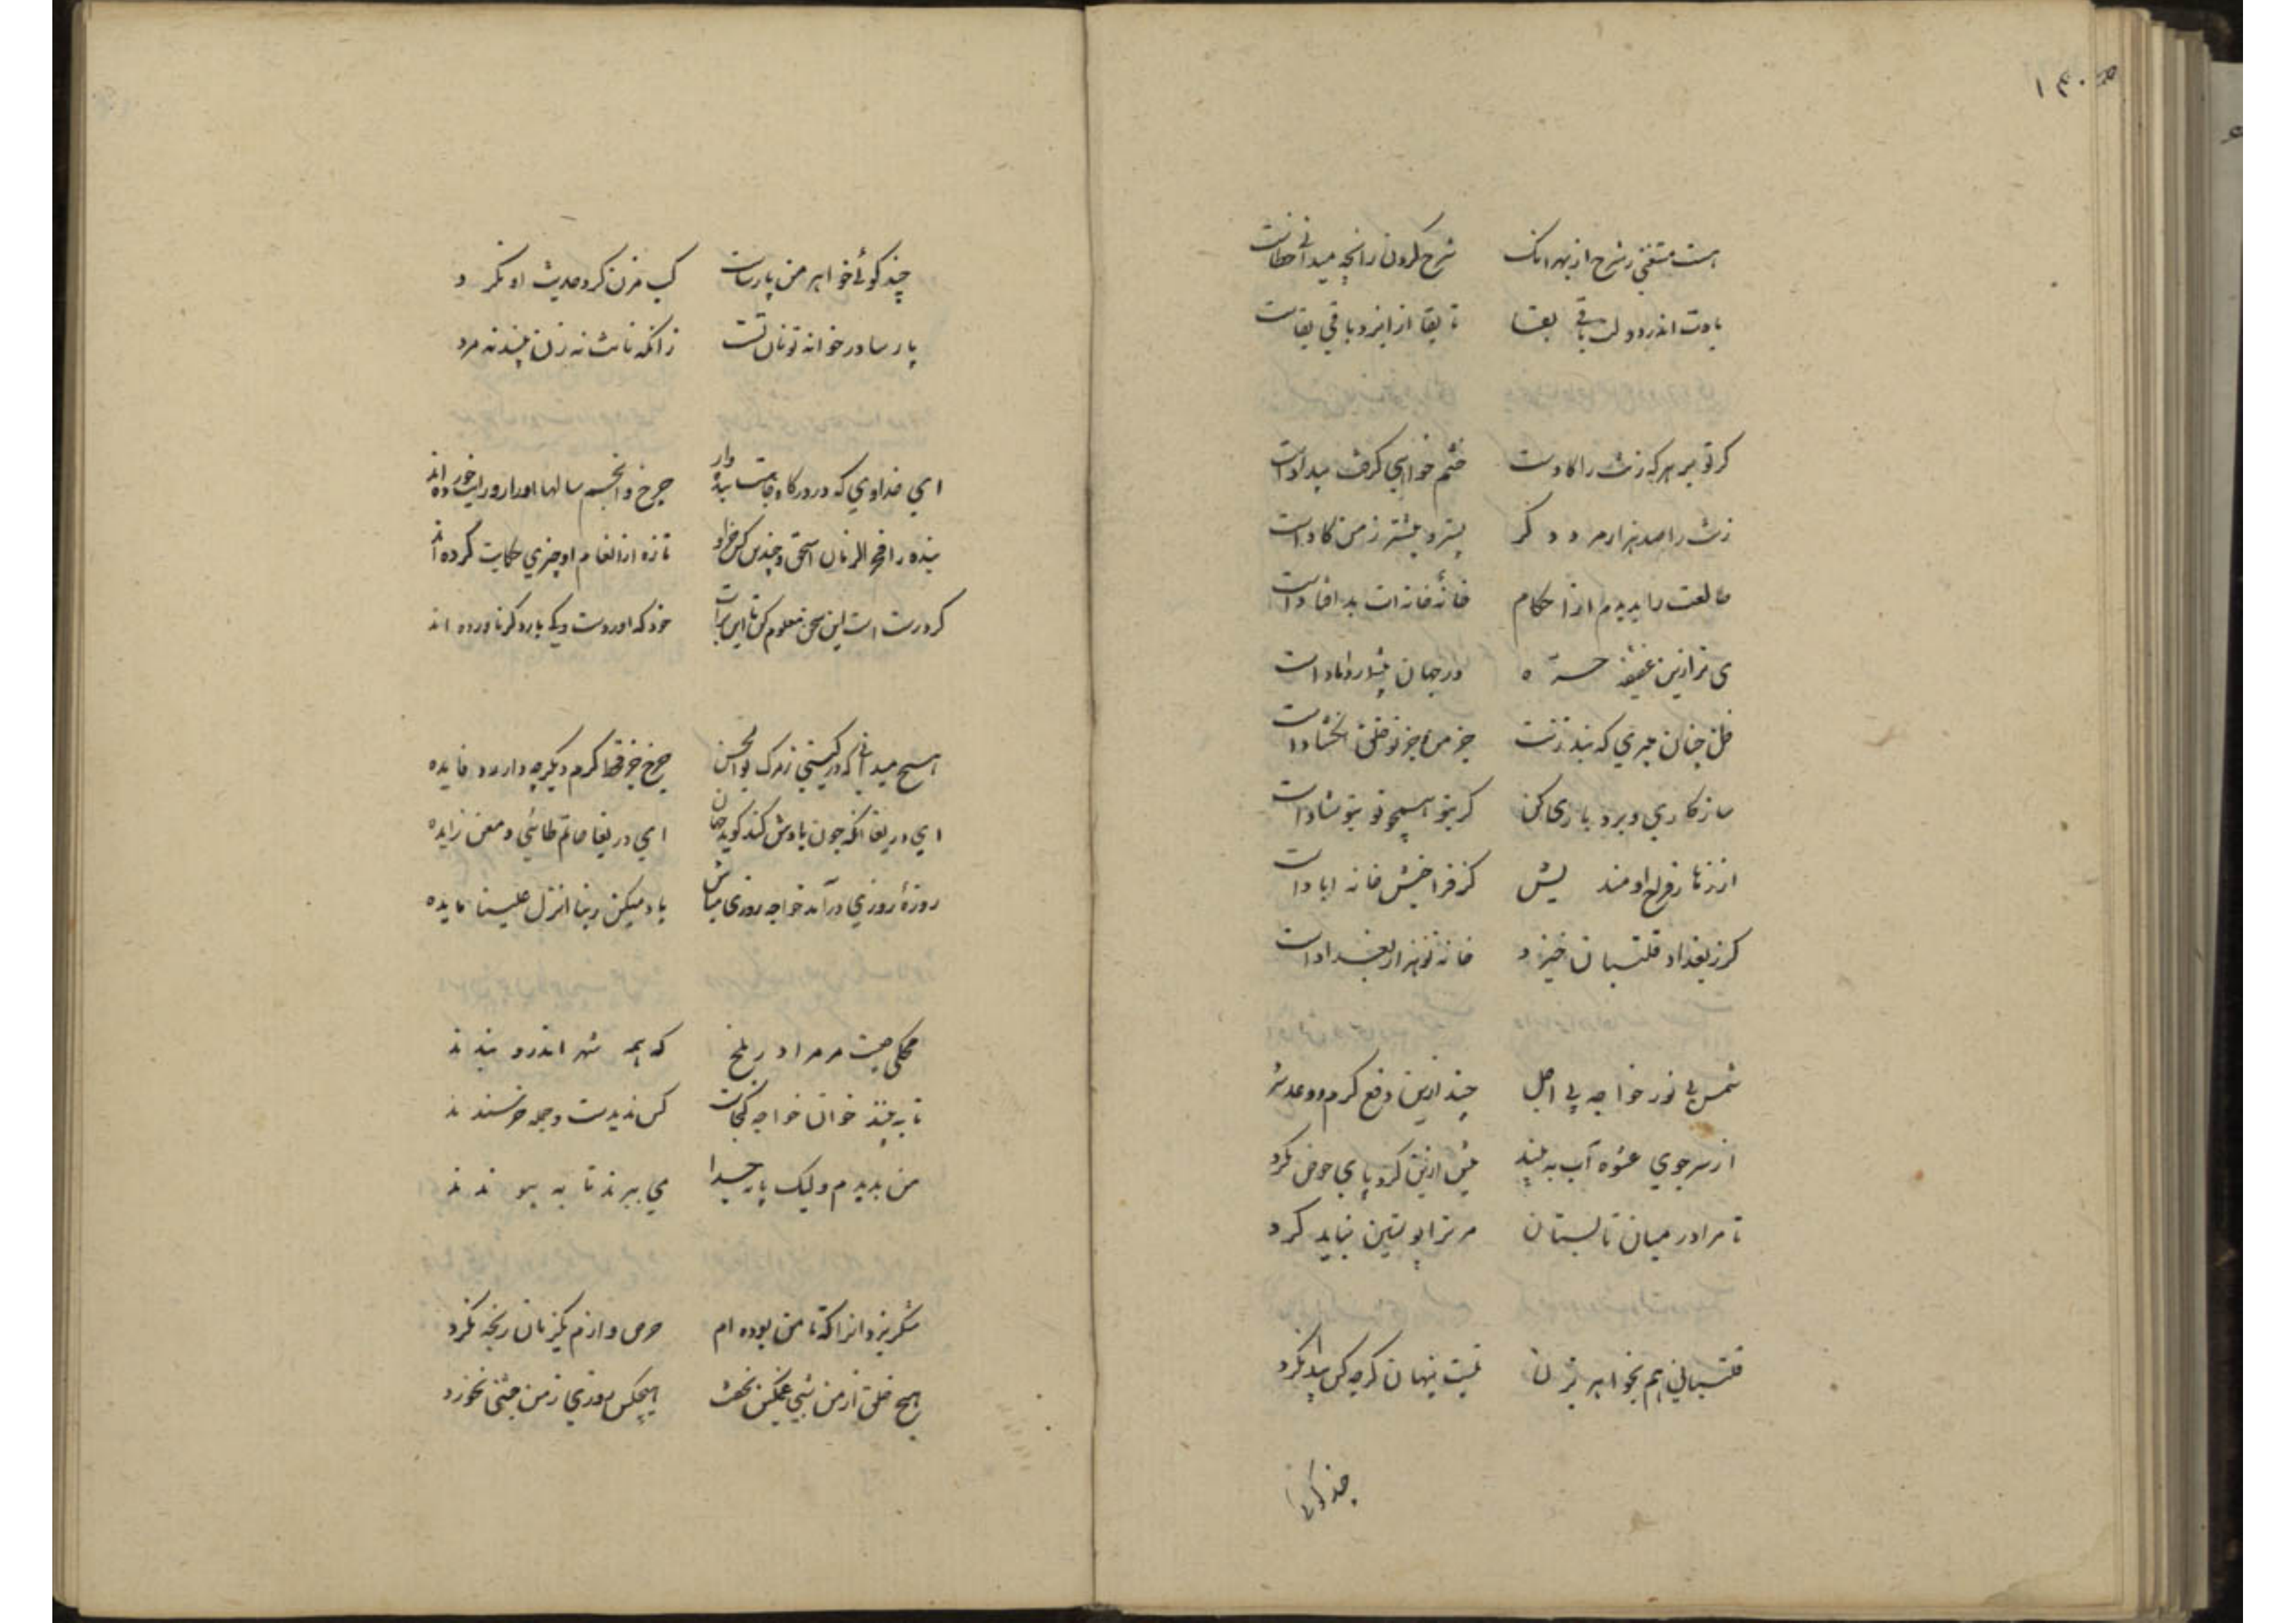 ۱۴۰
هست مستغنی ز شرح از بهر انک شرح کردن زانچه میدانی خطاست
بادت اندر دولت باقی بقا تا بقا از ایزد باقی بقاست
کر تو بر هرکه زنت را کادست خشم خواهی کرفت بیدادست
زنت را صد هزار مرد دکر بیشتر ز من کادست
طالعت را بدیدم از احکام خانه خانه ات بد افتادست
در جهان دامادست
چنان که بند زنت جز من و جز تو خلق نکشادست
سازکاری و بردباری کن کر بتو هیچو تو بتو شادست
از زنا رنج او میندیش کز فراخیش خانه ابادست
کرز بغداد قلتبان خیزد خانه تو هزار بغدادست
شمس بی نور خواجه بی اصل چند ازین دفع کرم و وعده سرد
از سر جوی عشوه آب به بند بیش ازین کرد پای حوض نکرد
تا مرا در میان تابستان مر ترا پوستین نباید کرد
قلتبانی هم بخواهر هم بزن نیست پنهان کرچه کس پیدا نکرد
چند کوئی
چند کوئی خواهر من پارساست کپ مزن کرد حدیث او نکرد
پارسا در خانه تو نان تست زانکه نانت نه زن بیند نه مرد
ای خداوندی که در درکاه جاهت بنده وار چرخ و انجم سالها ادرار و راتب خورده اند
بنده را فخر الزمان اسحق و چندین کس جز او تازه از انعام او چیزی حکایت کرده اند
کر درست است این سخن معلوم کن تا این برات خود که اوردست و یک باره دکر ناورده اند
هیچ میدانی که در کیتی ز مرک بوالحسن چرخ جز قحط کرم دیکر چه دارد فایده
ای دریغا انکه چون یادش کند کوید جهان ای دریغا حاتم طائی و معن زایده
روزه روزی درآمد خواجه روزی مباش یاد میکن ربنا انزل علینا مایده
محکمی چیست مر مرا در بلخ که همه شهر اندرو بندند
تا به بینند خوان خواجه کجاست کس ندیدست و جمله خرسندند
من بدیدم ولیک پاره جدا می برند تا به پیوندند
شکر یزدان را که تا من بوده ام حرص و ازم یکزمان رنجه نکرد
هیچ خلق از من شبی غمکین نخفت هیچکس روزی ز من خشمی نخورد